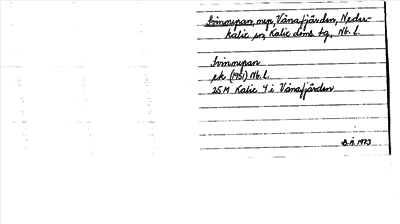 Svinnupan, myr, Vånafjärden, Neder-
kalix sn, Kalix doms. tg, Nb. l.
Svinnupan
ek (1951) Nb. l.
25M Kalix 4 i Vånafjärden
S.A. 1973